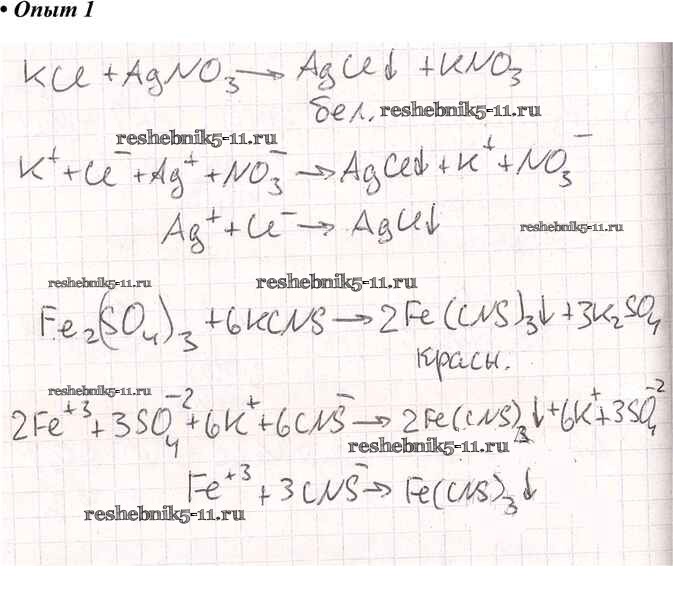 • Опыт 1
KCl + AgNO₃ → AgCl↓ + KNO₃
бел. reshebnik5-11.ru
reshebnik5-11.ru
K⁺ + Cl⁻ + Ag⁺ + NO₃⁻ → AgCl↓ + K⁺ + NO₃⁻
Ag⁺ + Cl⁻ → AgCl↓
reshebnik5-11.ru
reshebnik5-11.ru reshebnik5-11.ru
Fe₂(SO₄)₃ + 6KCNS → 2Fe(CNS)₃↓ + 3K₂SO₄
красн.
reshebnik5-11.ru
2Fe⁺³ + 3SO₄⁻² + 6K⁺ + 6CNS⁻ → 2Fe(CNS)₃↓ + 6K⁺ + 3SO₄⁻²
reshebnik5-11.ru
Fe⁺³ + 3CNS⁻ → Fe(CNS)₃↓
reshebnik5-11.ru